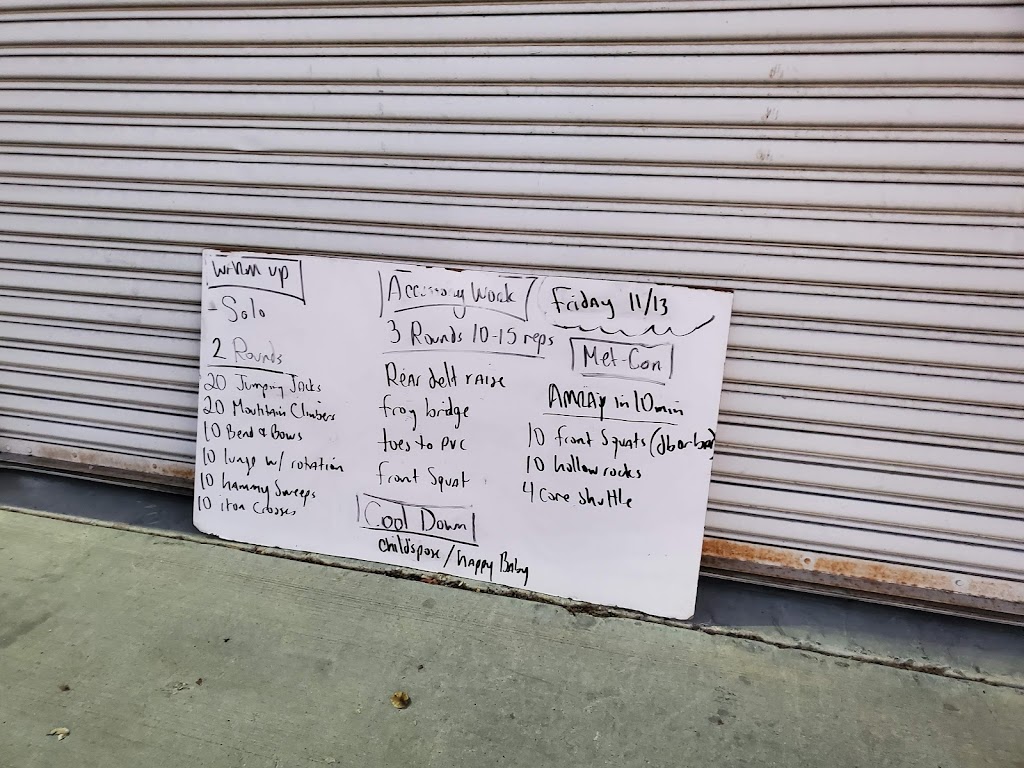 Warm up
- Solo
2 Rounds
20 Jumping Jacks
20 Mountain Climbers
10 Bend & Bows
10 lunge w/ rotation
10 hammy Sweeps
10 iron Crosses
Accessory Work
3 Rounds 10-15 reps
Rear delt raise
frog bridge
toes to PVC
front Squat
Cool Down
childspose / happy Baby
Friday 11/13
Met-Con
AMRAP in 10 min
10 front Squats
10 hollow rocks
4 cone shuttle